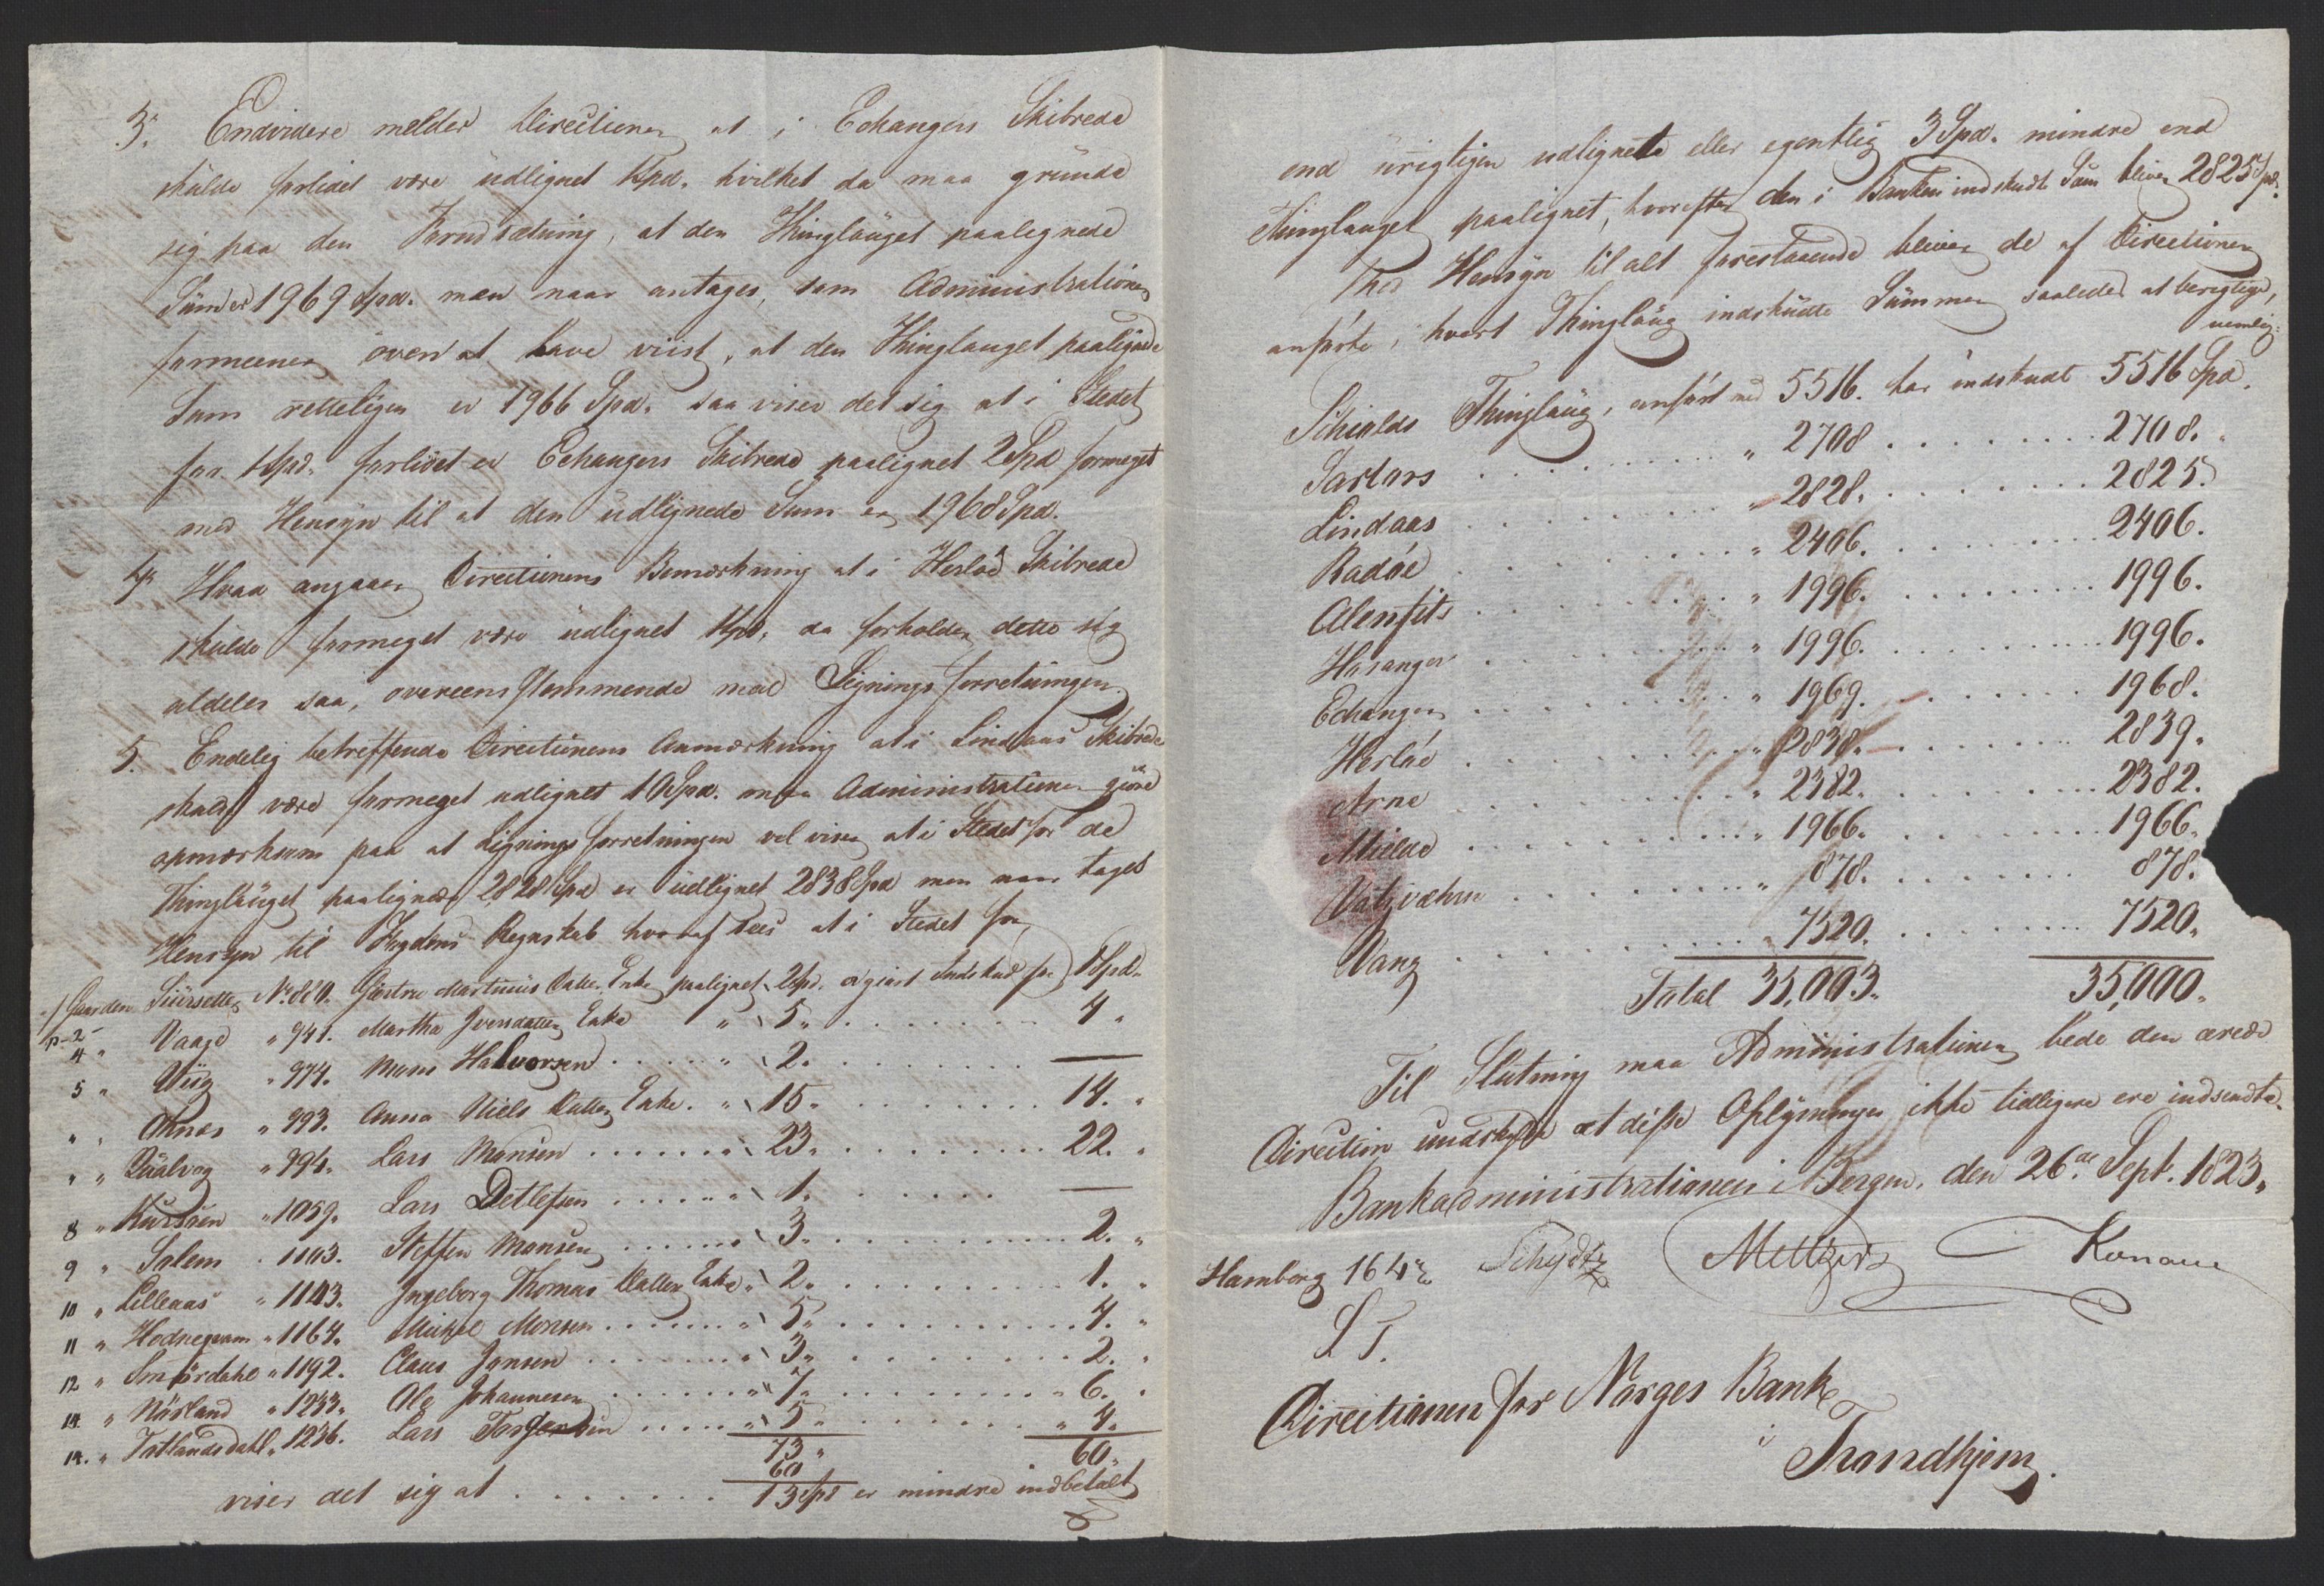 3. Endvidere melder Directionen at i Echangers Skibrede
skulde forlidet være udlignet 1Spd. hvilket da maa grunde
sig paa den Forudsætning, at den Thinglauget paalegnede
Sum er 1969 Spd. men naar antages, som Administrationen
formeener oven at have viist, at den Thinglauget paalignede
Sum retteligen er 1966 Spd. saa viser det sig at i Stedet
for 1Spd. forlidet er Echangers Skibrede paalignet 2Spd formeget
med Hensyn til at den udlignede Sum er 1968 Spd.
4. Hvad angaaer Directionens Bemærkning at i Herløe Skibrede
skulde formeget være udlignet 1Spd. da forholder dette sig
aldeles saa, overeensstemmende med Lignings forretningen.
5. Endelig betreffende Directionens Anmærkning at i Lindaas Skibrede
skulde være formeget udlignet 10Spd. maa Administrationen giøre
opmærksom paa at Lignings forretningen vel viser at i Stedet for de
Thinglauget paalignede 2828 Spd er udlignet 2838 Spd men naar tages
Hensyn til Fogdens Regnskab hvoraf sees at i Stedet for
Gaarden Siursetter No 880. Giertru Martinus Datter Enke paalignet 2Spd. er giort Indskud for 1Spd.
p. 2
4 " Vaage " 941. Martha Iversdatter Enke " 5 " . . . 4 "
5 " Viig " 974. Mons Halvorsen . . . " 2. . . . —
" " Oknes " 993. Anna Niels Datter Enke. " 15 " . . . 14. "
" " Qualvog " 994. Lars Monsen . . . " 23. . . . 22. "
8 " Kursren " 1059. Lars Detlefsen . . . " 1. . . . —
9 " Solem . 1103. Steffen Monsen . . . " 3. . . . 2. "
10 " Lilleaas " 1143. Ingeborg Thomas Datter Enke " 2. . . . 1. "
11 " Hodneqvam " 1164. Mickel Monsen . . . " 5. . . . 4. "
12 " Smørdahl " 1192. Claus Jansen . . . " 3. . . . 2. "
14 " Nøsland " 1233. Ole Johannesen . . . " 7. . . . 6. "
14. " Totlandsdahl " 1236. Lars Torgersen . . . " 5 " . . . " 4.
73 " 60 "
60
viser det sig at . . . 13Spd er mindre indbetalt
end urigtigen udlignede eller egentlig 3 Spd. mindre end
Thinglauget paalignet, hvorefter den i Banken indskudte Sum bliver 2825 Spd.
Med Hensyn til alt forestaaende bliver de af Directionen
anførte, i hvert Thinglaug indskudte Summer saaledes at berigtige,
nemlig:
Schiolds Thinglaug, anført med 5516. har indskudt 5516 Spd.
Sartors . . . " 2708 . . . 2708. "
Lindaas . . . " 2828. . . . 2825.
Radøe . . . " 2406. . . . 2406.
Alenfits . . . " 1996. . . . 1996.
Hosanger . . . " 1996. . . . 1996.
Echanger . . . " 1969. . . . 1968.
Herløe . . . " 2838. . . . 2839.
Arne . . . " 2382. . . . 2382.
Mielde . . . " 1966. . . . 1966.
Vatsvæhrn . . . " 878. . . . 878.
Vang . . . " 7520. . . . 7520.
Total 35,003. 35,000.
Til Slutning maa Administrationen bede den ærede
Direction undskylde at disse Oplysninger ikke tidligere ere indsendte.
Bankadministrationen i Bergen, den 26de Sept. 1823.
Schydtz Meltzer Konow
S T.
Directionen for Norges Bank
i
Trondhjem.